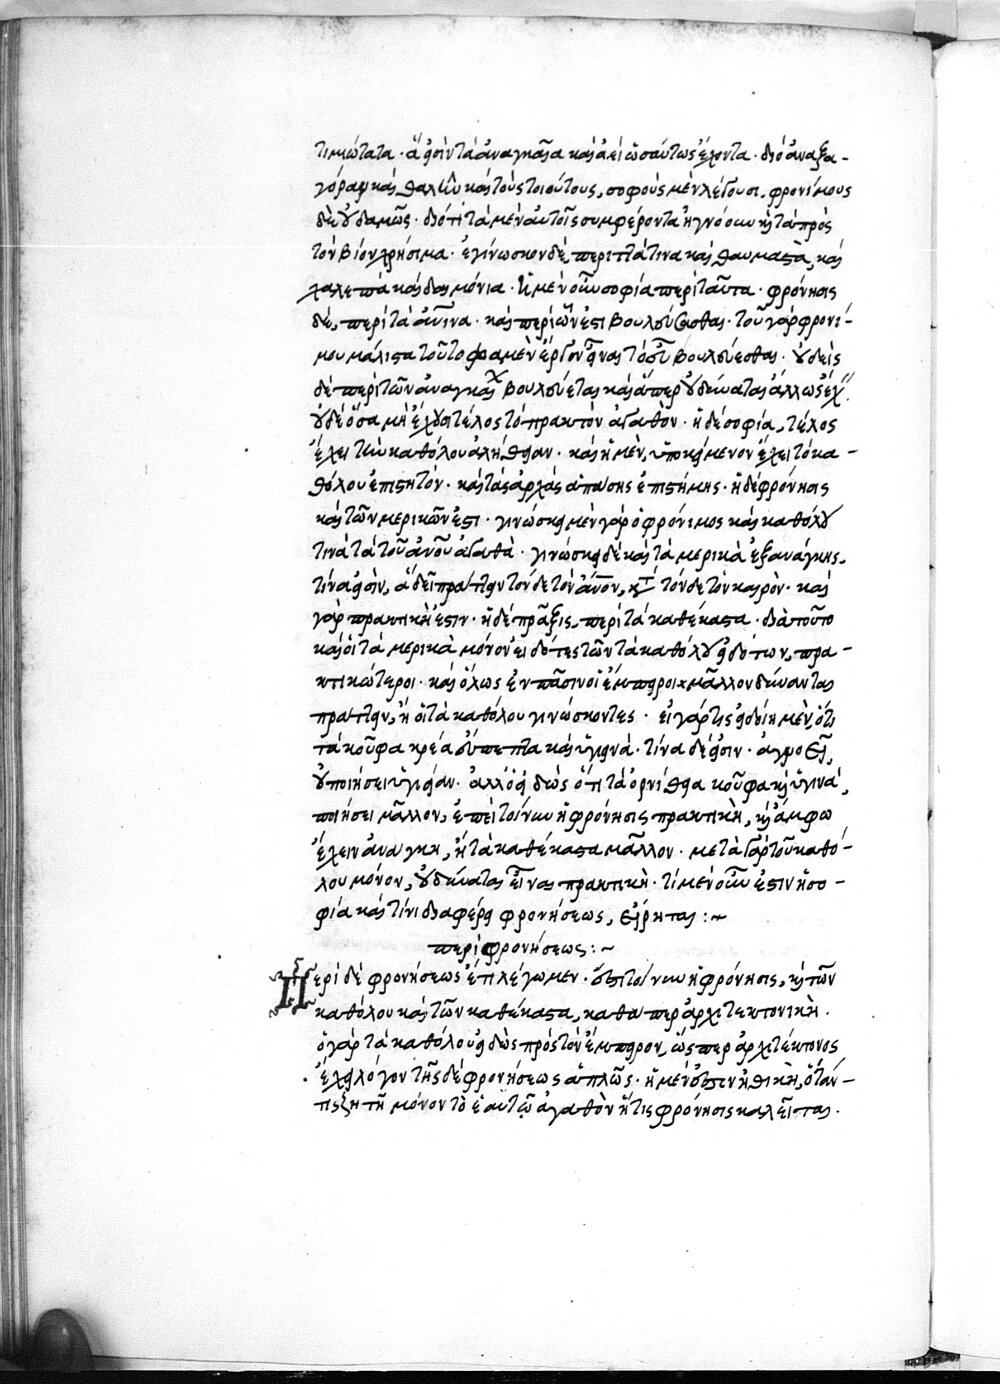 τιμιώτατα · ἅ εἰσὶν τὰ ἀναγκαῖα καὶ ἀεὶ ὡσαύτως ἔχοντα · διὸ ἀναξα-
γόραν καὶ θαλῆν καὶ τοὺς τοιούτους, σοφοὺς μὲν λέγουσι, φρονίμους
δὲ οὐδαμῶς · διότι τὰ μὲν αὐτοῖς συμφέροντα ἠγνόουν καὶ τὰ πρὸς
τὸν βίον χρήσιμα · ἐγίνωσκον δὲ, περιττά τινα καὶ θαυμαστὰ, καὶ
χαλεπὰ καὶ δαιμόνια · ἡ μὲν οὖν σοφία περὶ ταῦτα · φρόνησις
δὲ, περὶ τὰ ἀνθρώπινα · καὶ περὶ ὧν ἔστι βουλεύσασθαι · τοῦ γὰρ φρονί-
μου μάλιστα τοῦτο φαμὲν ἔργον εἶναι τὸ εὖ βουλεύεσθαι · οὐδεὶς
δὲ περὶ τῶν ἀναγκαίων βουλεύεται καὶ ἅπερ οὐ δύναται ἄλλως ἔχειν ·
οὐδὲ ὅσα μὴ ἔχουσι τέλος τὸ πρακτὸν ἀγαθὸν · ἡ δὲ σοφία, τέλος
ἔχει τὴν καθόλου ἀλήθειαν · καὶ ἡ μὲν, ὑποκείμενον ἔχει τὸ κα-
θόλου ἐπιστητόν · καὶ τὰς ἀρχὰς ἁπάσης ἐπιστήμης · ἡ δὲ φρόνησις
καὶ τῶν μερικῶν ἐστι · γινώσκει μὲν γὰρ ὁ φρόνιμος καὶ καθόλου
τινὰ τὰ τοῦ ἀνθρώπου ἀγαθὰ · γινώσκει δὲ καὶ τὰ μερικὰ ἐξ ἀνάγκης.
τίνα εἰσὶν, ἃ δεῖ πράττειν τόνδε τὸν ἄνθρωπον, κατὰ τόνδε τὸν καιρὸν · καὶ
γὰρ πρακτικὴ ἐστιν · ἡ δὲ πρᾶξις, περὶ τὰ καθέκαστα · διὰ τοῦτο
καὶ οἱ τὰ μερικὰ μόνον εἰδότες τῶν τὰ καθόλου εἰδότων, πρα-
κτικώτεροι · καὶ ὅλως ἐν πᾶσιν οἱ ἔμπειροι μᾶλλον δύνανται
πράττειν, ἢ οἱ τὰ καθόλου γινώσκοντες · εἰ γάρ τις εἰδείη μὲν, ὅτι
τὰ κοῦφα κρέα εὔπεπτα καὶ ὑγιεινά · τίνα δέ εἰσιν · ἀγνοεῖ,
οὐ ποιήσει ὑγίειαν · ἀλλ' ὁ εἰδὼς ὅτι τὰ ὀρνίθεια κοῦφα καὶ ὑγιεινά,
ποιήσει μᾶλλον, ἐπεὶ τοίνυν ἡ φρόνησις πρακτικὴ, καὶ ἄμφω
ἔχειν ἀνάγκη, ἢ τὰ καθέκαστα μᾶλλον · μετὰ γὰρ τοῦ καθό-
λου μόνον, οὐ δύναται εἶναι πρακτικὴ · τί μὲν οὖν ἐστιν ἡ σο-
φία καὶ τίνι διαφέρει φρονήσεως, εἴρηται :~
περὶ φρονήσεως :~
Περὶ δὲ φρονήσεως ἔτι λέγωμεν · ἔστι τοίνυν ἡ φρόνησις, καὶ τῶν
καθόλου καὶ τῶν καθέκαστα, καθάπερ ἀρχιτεκτονικὴ ·
ὁ γὰρ τὰ καθόλου εἰδὼς πρὸς τὸν ἔμπειρον, ὥσπερ ἀρχιτέκτονος
ἔχει λόγον τῆς δὲ φρονήσεως ἁπλῶς · ἡ μὲν ἔστιν ἠθικὴ, ὅταν
τις ζητῇ μόνον τὸ ἑαυτῷ ἀγαθὸν ἥτις φρόνησις καλεῖται ·